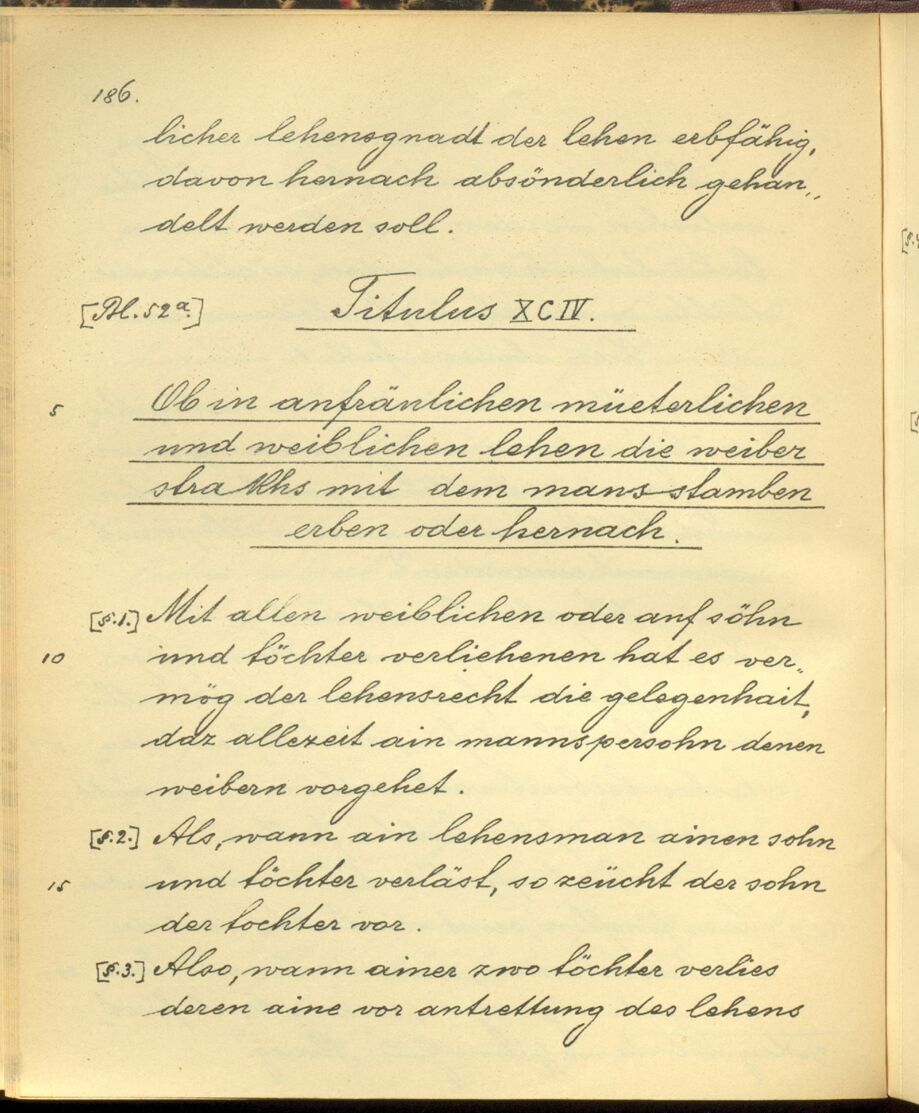 186.
licher lehensgnadt der lehen erbfähig,
davon hernach absönderlich gehan„
delt werden soll.
[Bl. 52a.] Titulus XCIV.
5 Ob in anfränlichen müeterlichen
und weiblichen lehen die weiber
strakhs mit dem mans stamben
erben oder hernach.
[§.1.] Mit allen weiblichen oder auf söhn
10 und töchter verliehenen hat es ver„
mög der lehensrecht die gelegenhait,
daz allezeit ain mannspersohn denen
weibern vorgehet.
[§.2.] Als, wann ain lehensman ainen sohn
15 und töchter verläst, so zeücht der sohn
der tochter vor.
[§.3.] Also, wann ainer zwo töchter verlies
deren aine vor antrettung des lehens